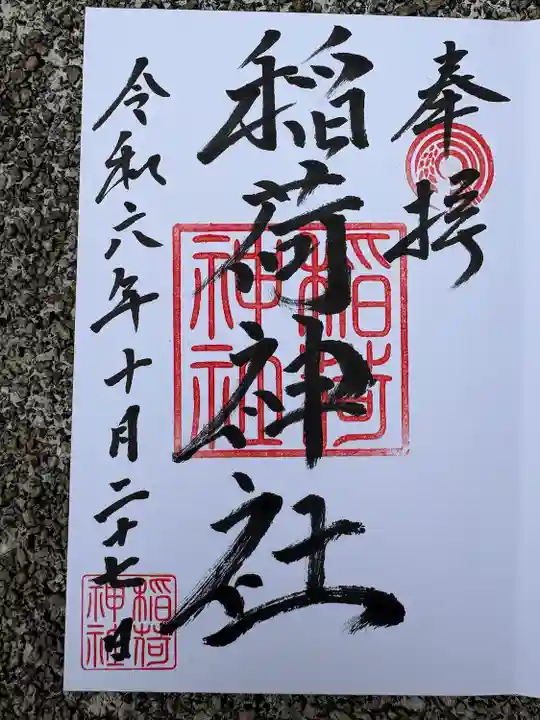 奉拝
稲荷神社
令和六年十月二十七日
稲荷神社
稲荷神社